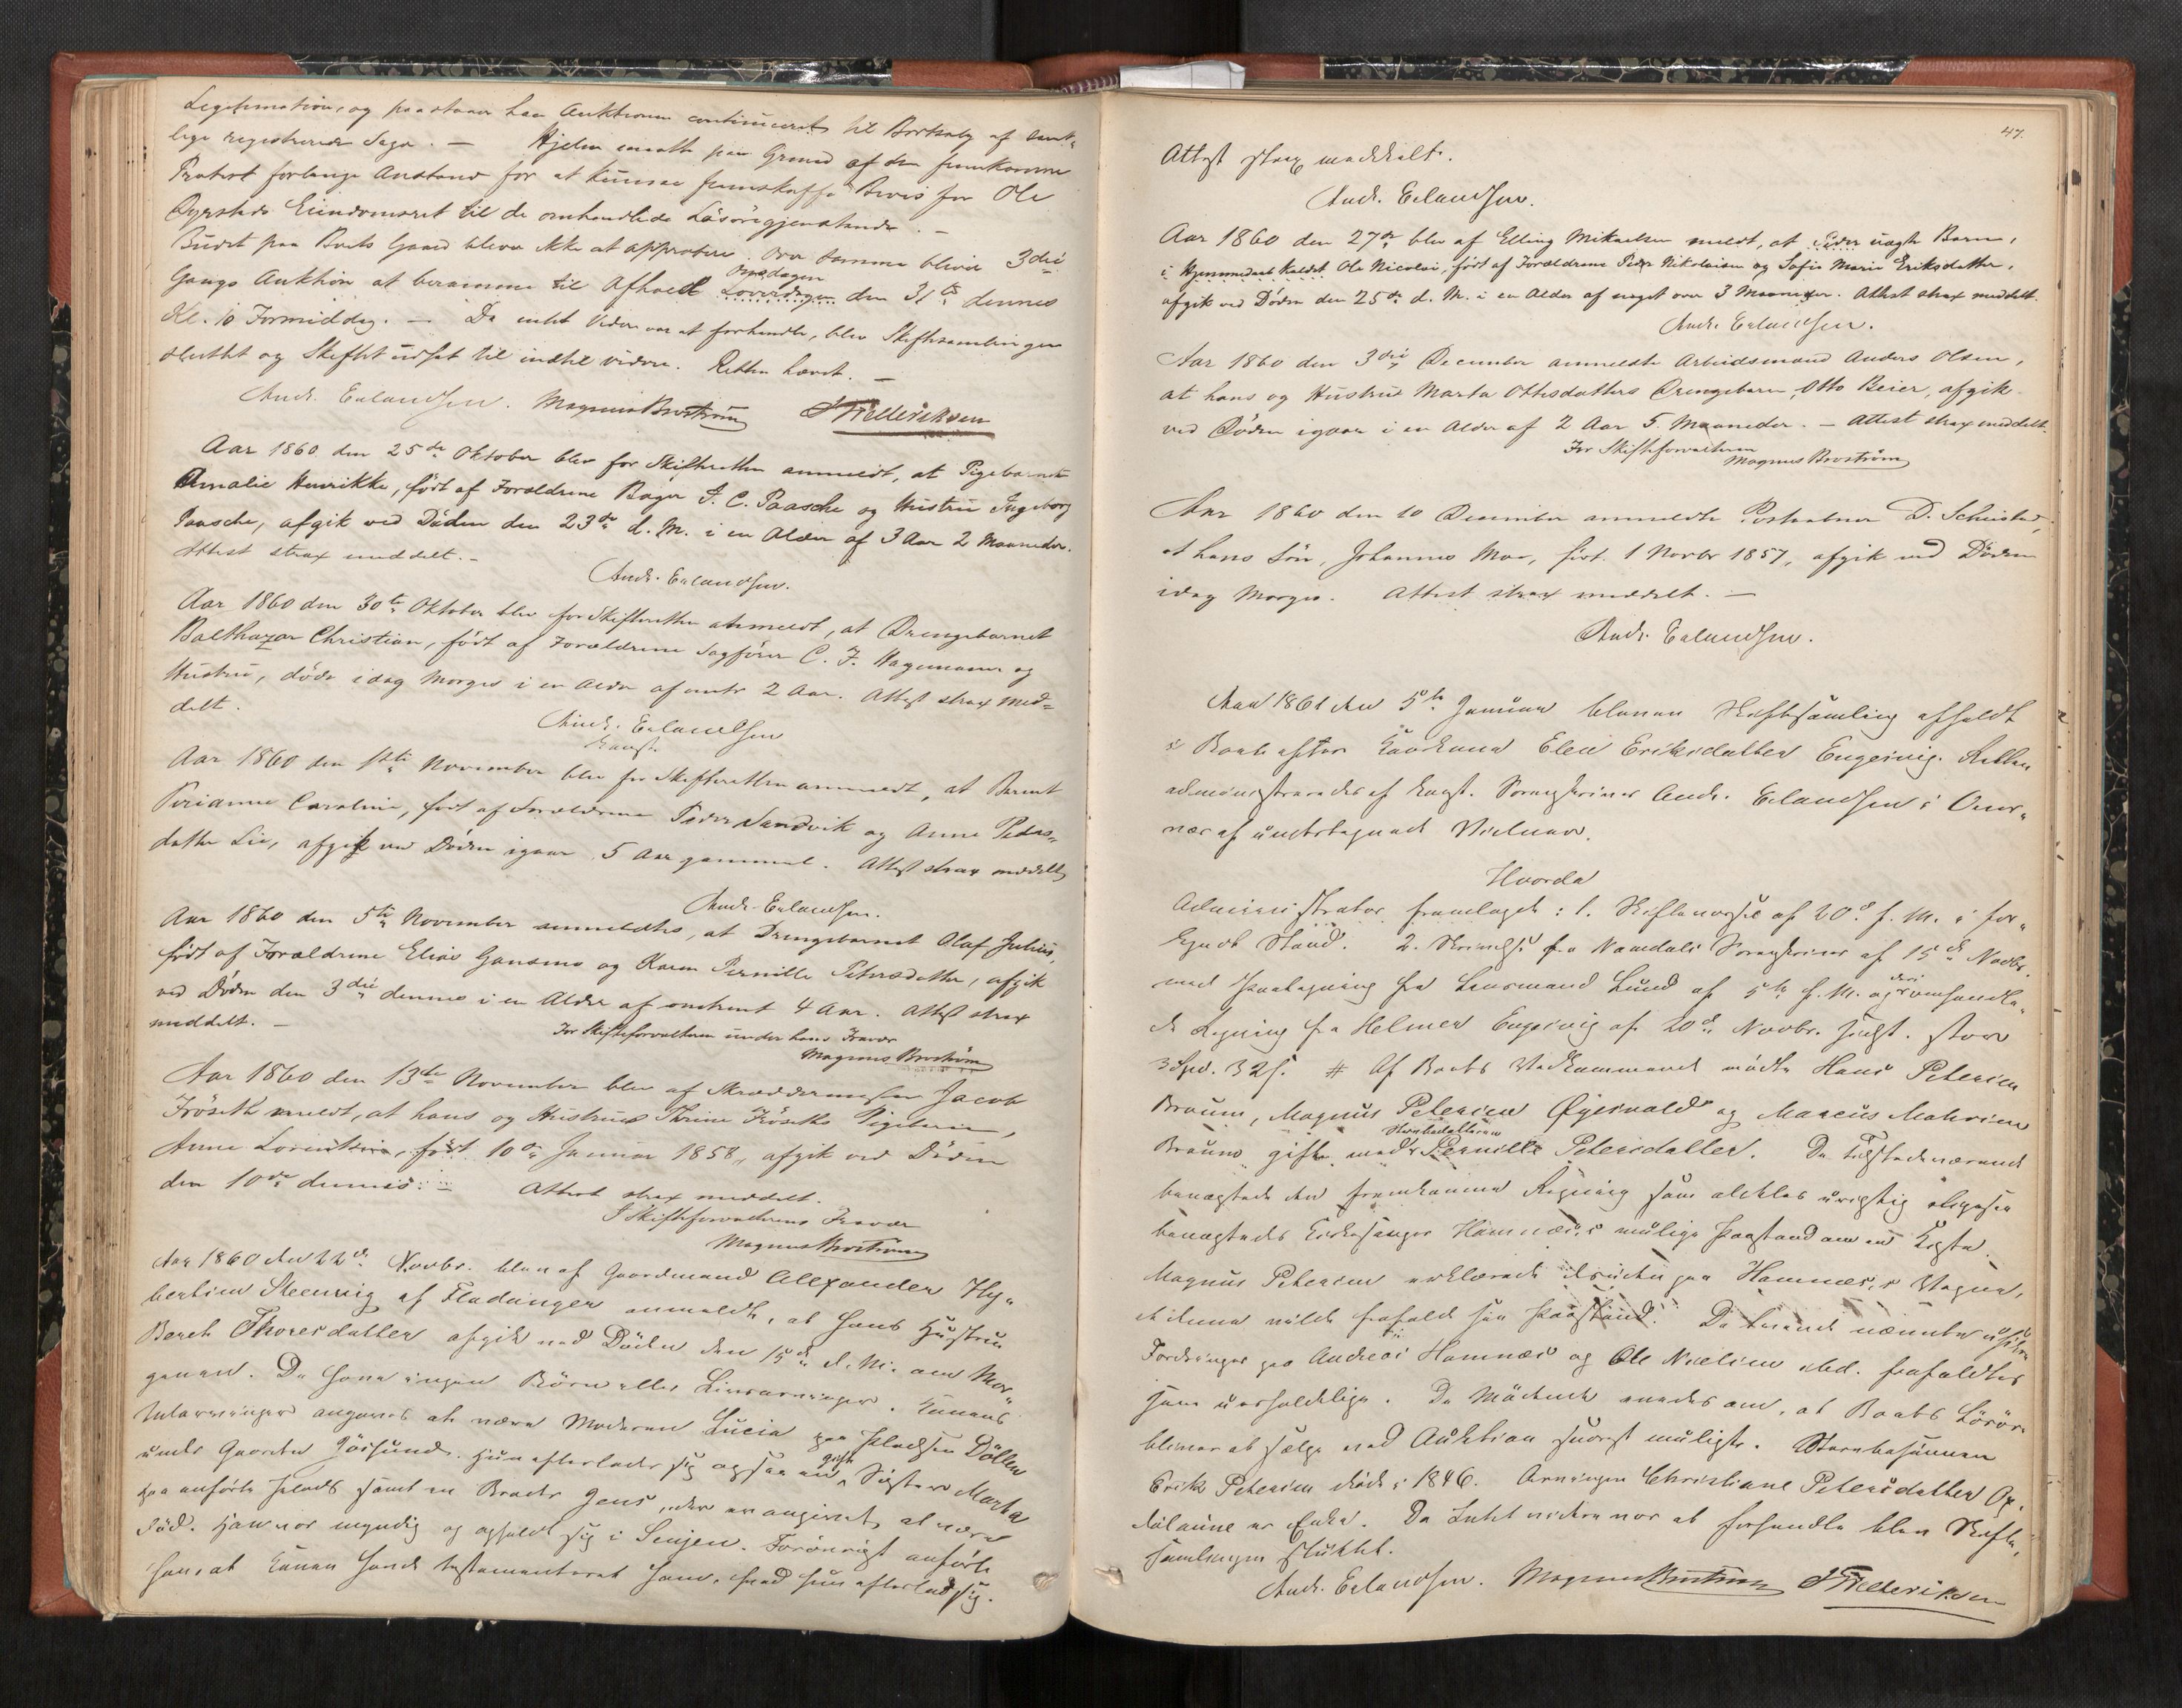 Legitimation, og paastaar han Auktionen continueret til Bortsalg af samt-
lige registrerede Sager. — Hjelm maatte paa Grund af den fremkomne
Protest forlange Anstand for at kunne fremskaffe Bevis for Ole
Dyrstads Eiendomsret til de omhandlede Løsøregjenstande. —
Budet paa Boets Gaard bliver ikke at approbere. Over samme bliver 3die
Gangs Auktion at beramme til Afholdelse Onsdagen
Løverdagen den 31te dennes
Kl. 10 Formiddag. — Da intet Videre var at forhandle, blev Skiftesamlingen
sluttet og Skiftet udsat til indtil videre. Retten hævet. —
Andr. Erlandsen. Magnus Broström J Frederiksen
Aar 1860 den 25de Oktober blev for Skifteretten anmeldt, at Pigebarnet
Amalie Henrikke, født af Forældrene Bager J. C. Paasche og Hustru Ingeborg
Paasche, afgik ved Døden den 23de d. M. i en Alder af 3 Aar 2 Maaneder.
Attest strax meddelt. —
Andr. Erlandsen.
Aar 1860 den 30te Oktober blev for Skifteretten anmeldt, at Drengebarnet
Balthazar Christian, født af Forældrene Sagfører C. F. Hagemann og
Hustru, døde idag Morges i en Alder af omtr. 2 Aar. Attest strax med=
delt.
Andr. Erlandsen
konst.
Aar 1860 den 1ste November blev for Skifteretten anmeldt, at Barnet
Pirianne Caroline, født af Forældrene Peder Sandvik og Anne Peders-
datter Lie, afgik ved Døden igaar, 5 Aar gammel. Attest strax meddelt
Andr. Erlandsen.
Aar 1860 den 5te November anmeldtes, at Drengebarnet Olaf Julius,
født af Forældrene Elias Gansmo og Karen Pernille Petersdatter, afgik
ved Døden den 3die dennes i en Alder af omtrent 4 Aar. Attest strax
meddelt. —
For Skifteforvalteren under hans Fravær
Magnus Broström
Aar 1860 den 13de November blev af Skræddermester Jacob
Frøseth meldt, at hans og Hustrues Thrine Frøseths Pigebarn,
Anne Lorentine, født 10de Januar 1858, afgik ved Døden
den 10de dennes. — Attest strax meddelt.
I Skifteforvalterens Fravær
Magnus Broström
Aar 1860 den 22de Novbr. blev af Gaardmand Alexander Hy-
bertsen Steensvig af Fladanger anmeldt, at hans Hustru
Bereth Thoresdatter afgik ved Døden den 15de d. M. om Mor-
genen. De have ingen Børn eller Livsarvinger. Konens
Udarvinger angaves at være Moderen Lucia paa Pladsen Döllen
under Gaarden Jösund. Hun efterlader sig ogsaa en gift Søster Marta
paa anførte Plads samt en Broder Jens, der er angivet at være
død. Han var myndig og opholdt sig i Senjen. Forøvrigt anførte
han, at Konen havde testamenteret ham, hvad hun efterlod sig.
47.
Attest strax meddelt.
Andr. Erlandsen.
Aar 1860 den 27de blev af Elling Mikaelsen meldt, at Peder uægte Barn,
i Hjemmedaab kaldet Ole Nicolai, født af Forældrene Peder Nikolaisen og Sofie Marie Eriksdatter,
afgik ved Døden den 25de d. M. i en Alder af noget over 3 Maaneder. Attest strax meddelt.
Andr. Erlandsen.
Aar 1860 den 3die December anmeldte Arbeidsmand Anders Olsen,
at hans og Hustrue Marta Ottesdatters Drengebarn, Otto Beier, afgik
ved Døden igaar i en Alder af 2 Aar 5 Maaneder. — Attest strax meddelt.
For Skifteforvalteren
Magnus Broström
Aar 1860 den 10 December anmeldte Postaabner D. Schiestad,
at hans Søn, Johannes Moe, født 1 Novbr 1857, afgik ved Døden
idag Morges. Attest strax meddelt. —
Andr. Erlandsen.
Aar 1861 den 5te Januar blev en Skiftesamling afholdt
i Boet efter Kaarkone Elen Eriksdatter Engesvig. Retten
administreredes af konst. Sorenskriver Andr. Erlandsen i Over-
vær af undertegnede Vidner.
Hvorda
Administrator fremlagde: 1. Skiftevarsel af 20de f. M. i for-
kyndt Stand. 2. Skrivelse fra Namdals Sorenskriver af 15de Novbr.
med Paategning fra Lensmand Lund af 5te f. M. og den omhandle-
de Regning fra Helmer Engesvig af 20de Novbr. sidst. stor
3 Spd. 32 s. # Af Boets Vedkommende mødte Hans Petersen
Braum, Magnus Petersen Øiesvald og Marcus Mahrsen
Braum, gift med Stervbodatteren Pernille Petersdatter. De Tilstedeværende
benægtede den fremkomne Regning som aldeles urigtig ligesom
benægtedes Kirkesanger Hamnæs's mulige Paastand om en Kiste.
Magnus Petersen erklærede desuden paa Hamnæs's Vegne,
at denne vilde frafalde sin Paastand. De
Fordringer paa Andreas Hamnæs og Ole Nielsen ibd. frafaldtes
som uerholdelige. De Mødende enedes om, at Boets Løsøre
bliver at sælge ved Auktion snarest muligt. Stervbosønnen
Erik Petersen døde i 1846. Arvingen Christiane Petersdatter Op-
daløine er Enke. Da Intet videre var at forhandle blev Skifte-
samlingen sluttet.
Andr. Erlandsen. Magnus Broström J Frederiksen